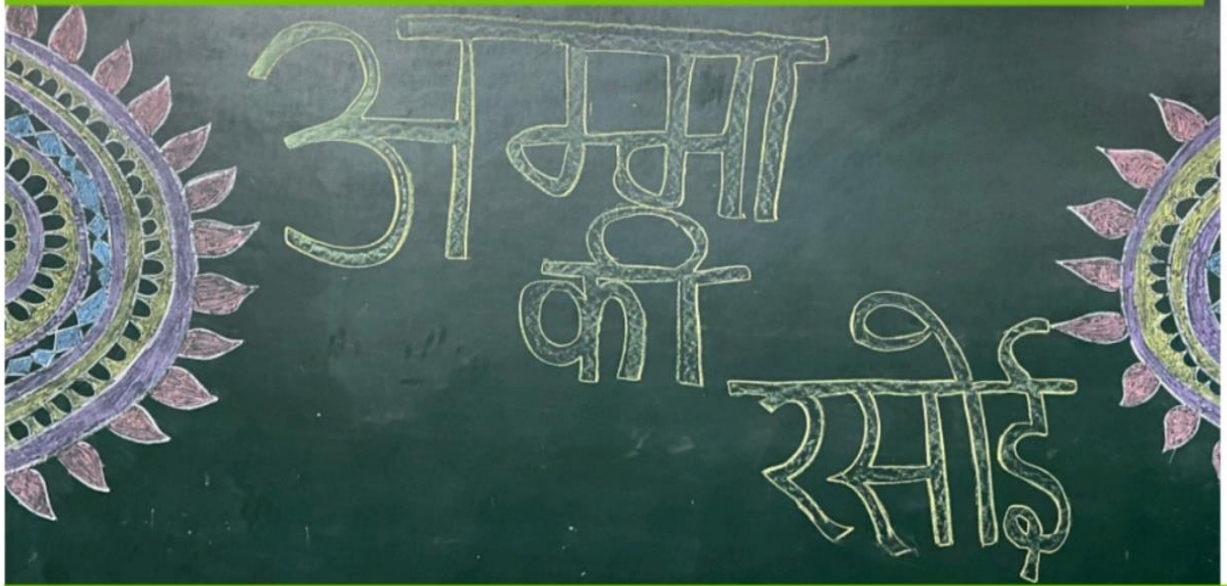 अम्मा
की
रसोई